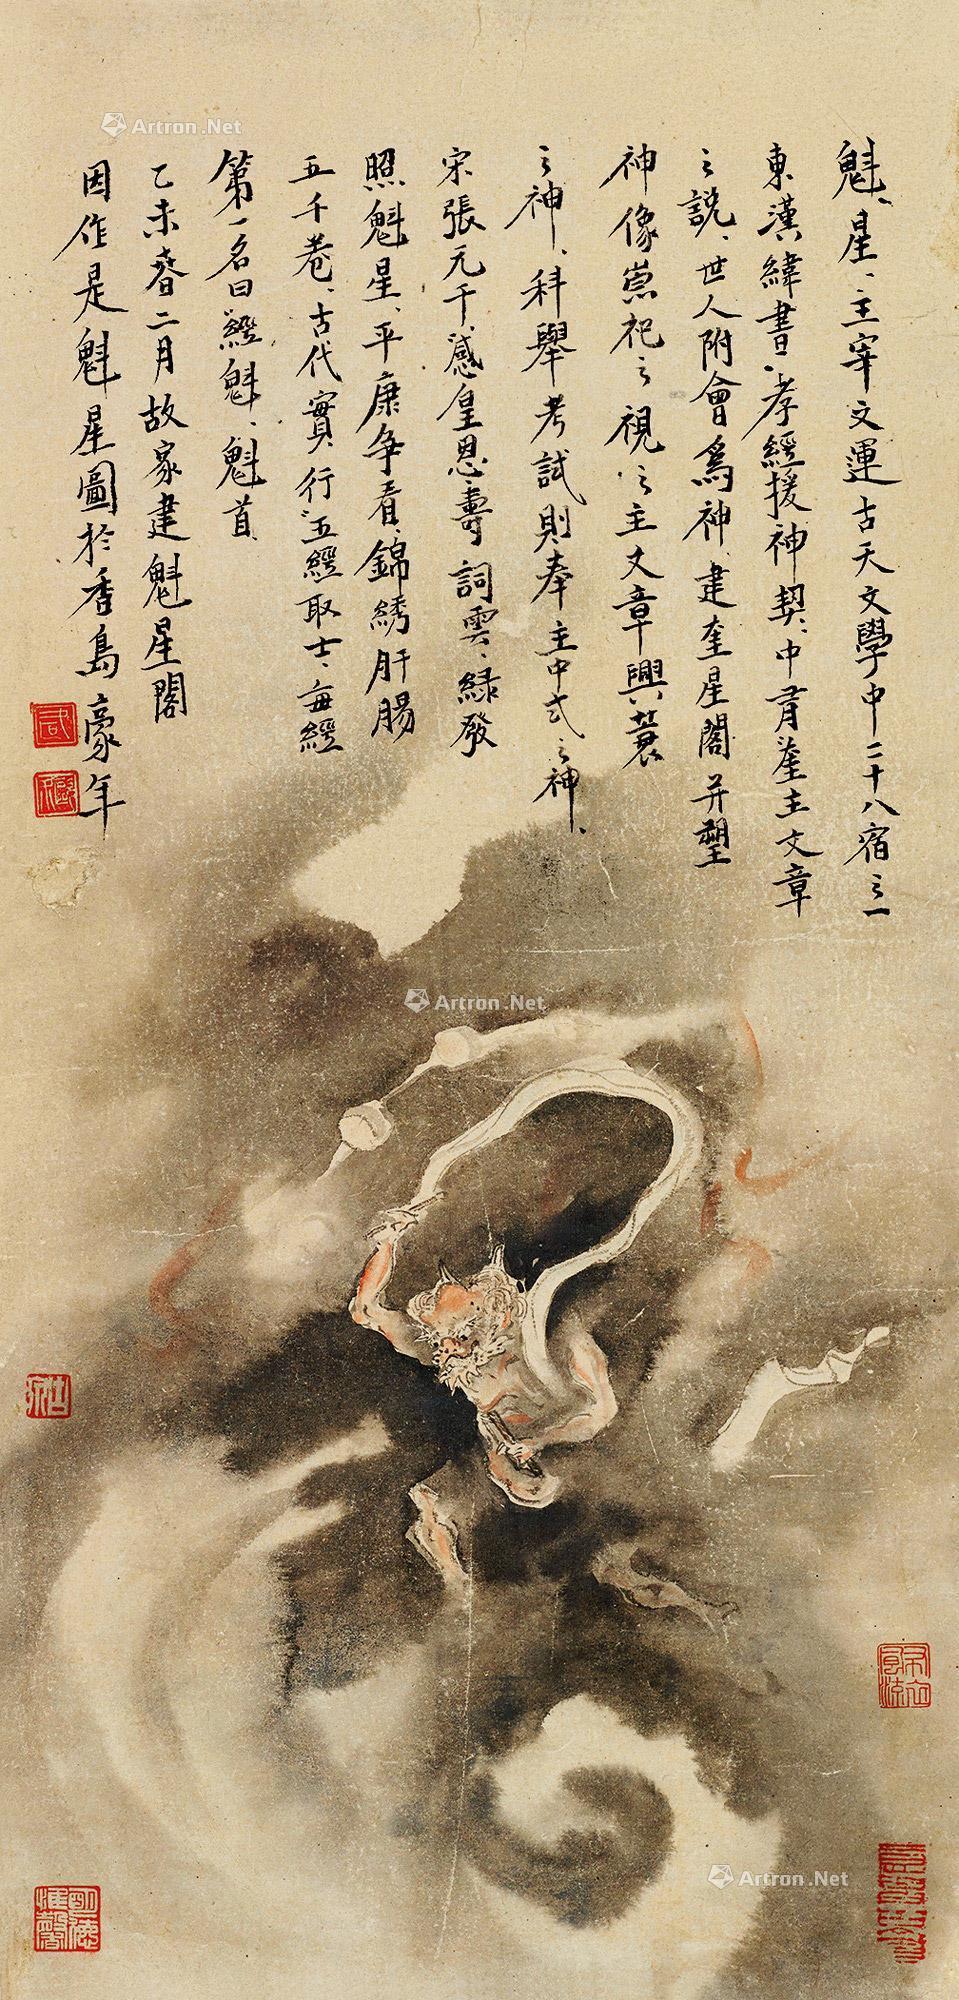 魁、星、主宰文運古天文學中二十八宿之一
東漢緯書、孝經援神契、中有奎主文章
之說、世人附會爲神、建奎星閣并塑
神像崇祀之視之主文章興衰
之神、科舉考試則奉主中式之神、
宋張元干感皇恩壽詞雲、綠發
照魁星、平康争看、錦綉肝腸
五千卷、古代實行五經取士、每經
第一名曰經魁、魁首
乙未春二月故家建魁星閣
因作是魁星圖於香島豪年
明德惟馨
Artron.Net
Artron.Net
Artron.Net